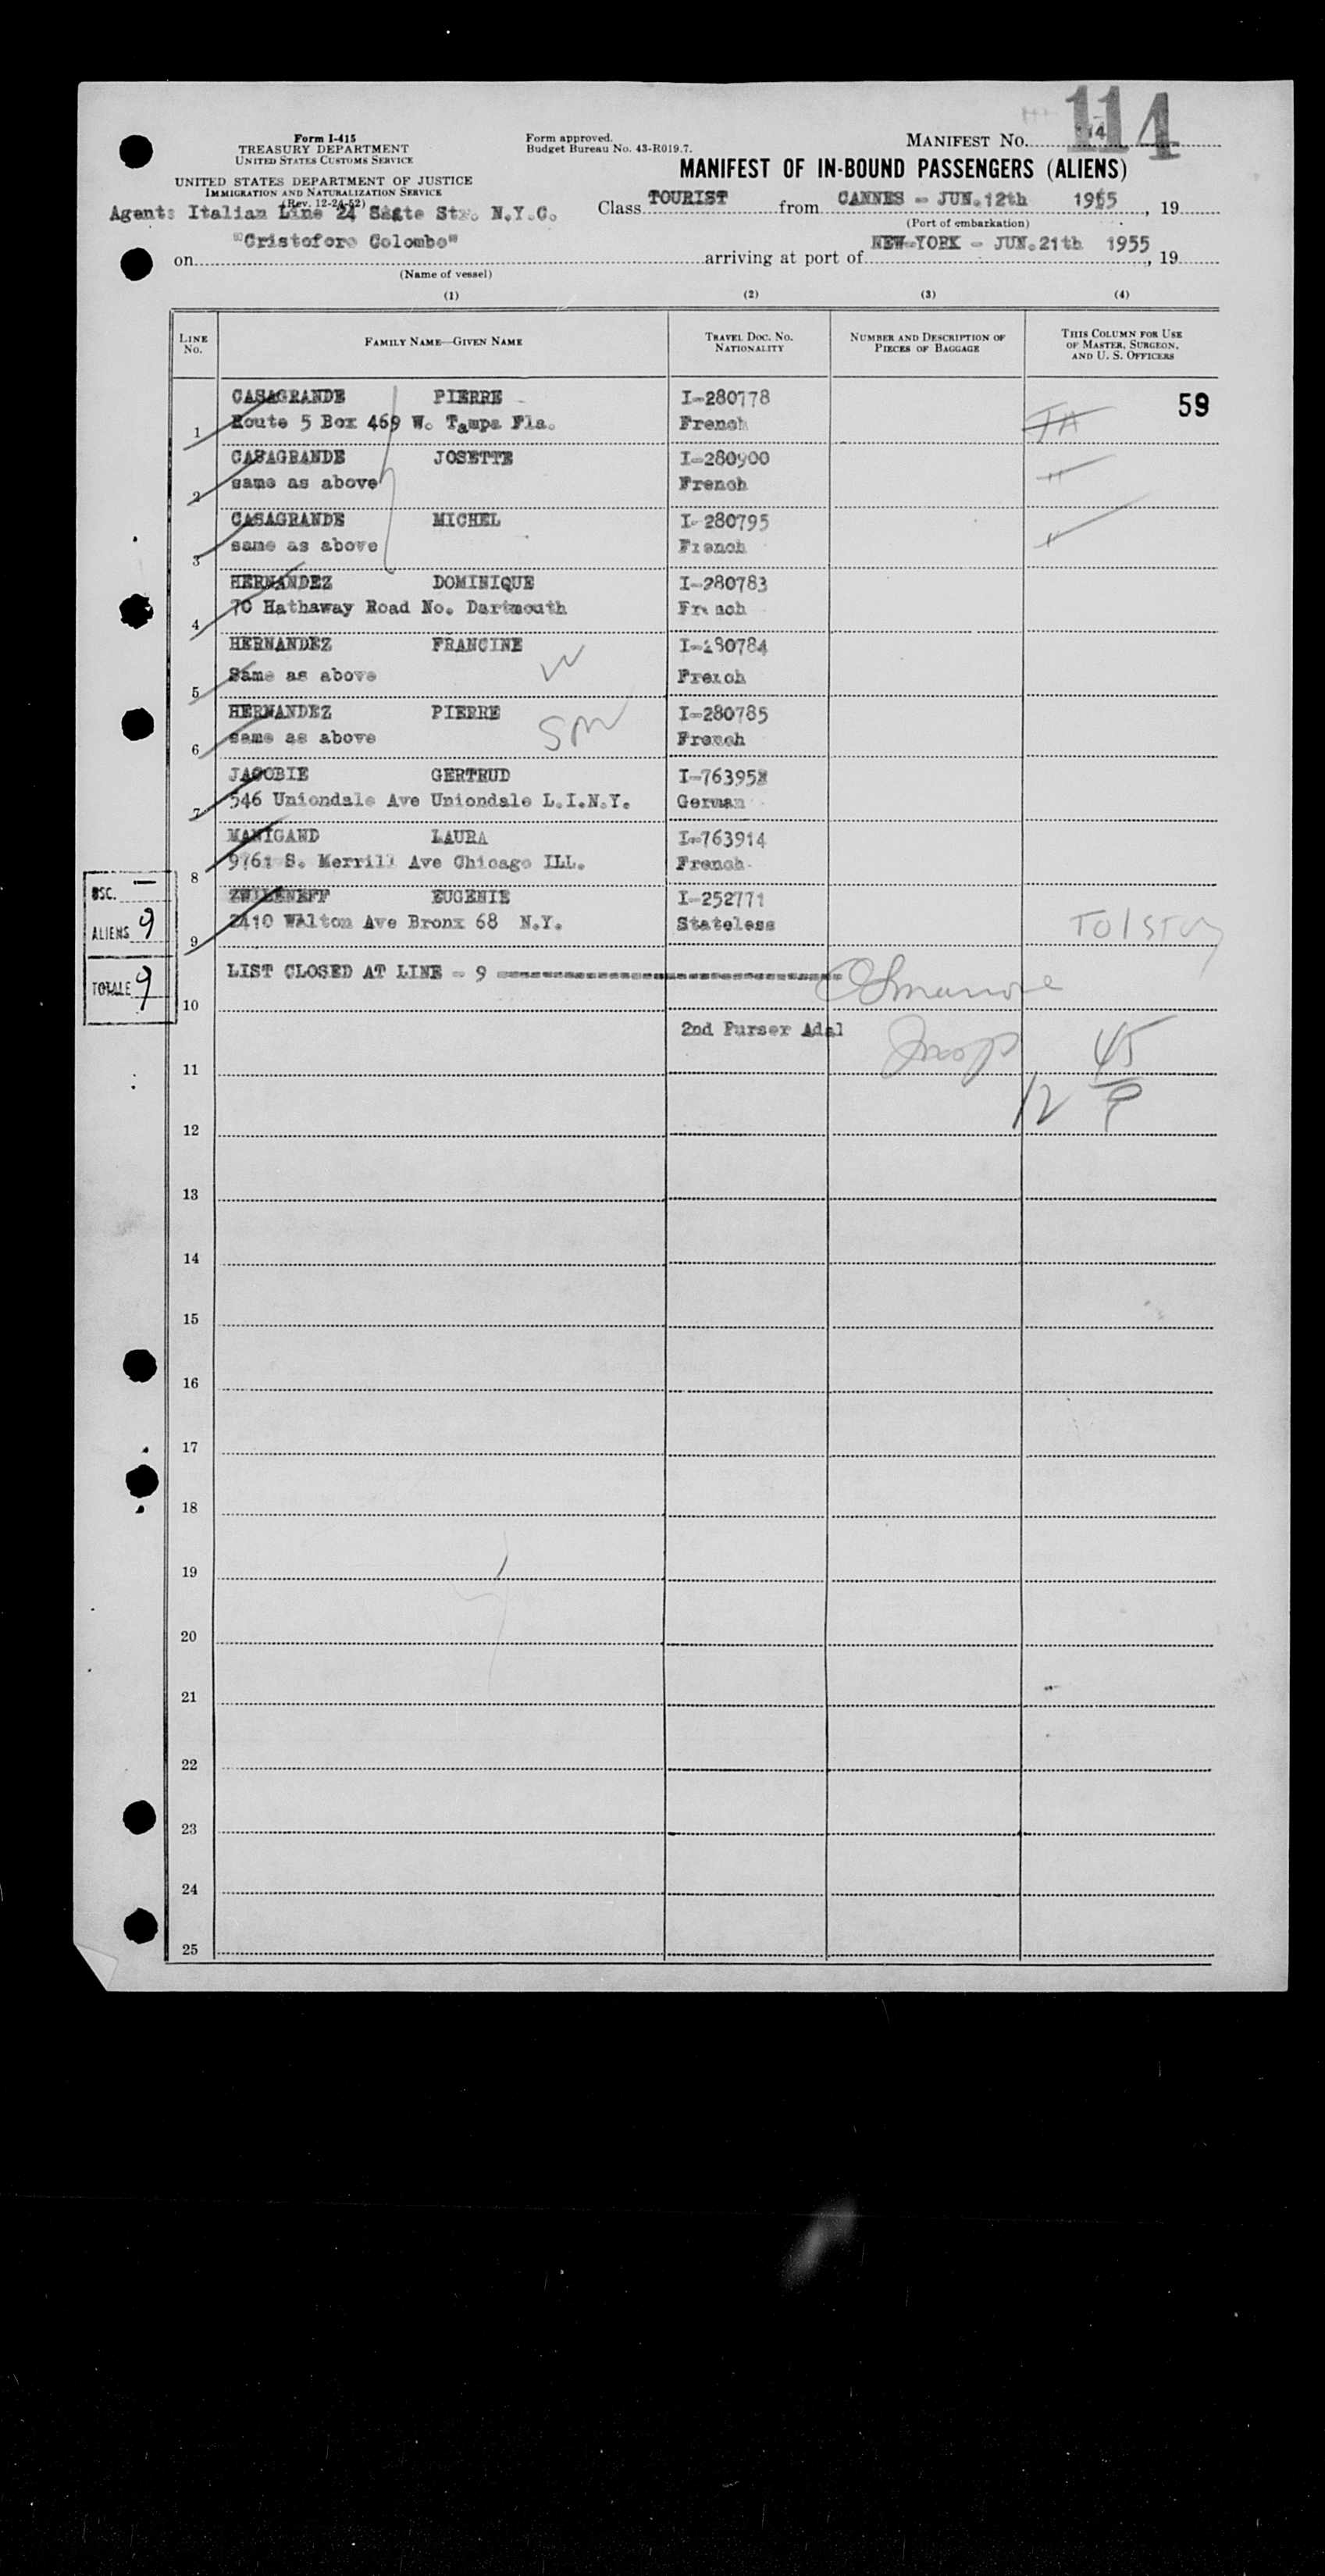 114
Form I-415
TREASURY DEPARTMENT
UNITED STATES CUSTOMS SERVICE
Form approved.
Budget Bureau No. 43-R019.7.
MANIFEST No. 114
UNITED STATES DEPARTMENT OF JUSTICE
IMMIGRATION AND NATURALIZATION SERVICE
(Rev. 12-24-52)
MANIFEST OF IN-BOUND PASSENGERS (ALIENS)
Agent: Italian Line 24 State Str. N.Y.C.
Class TOURIST from CANNES - JUN.12th 1955, 19
(Port of embarkation)
on "Cristoforo Colombo" arriving at port of NEW-YORK - JUN.21th 1955, 19
(Name of vessel)
(1) (2) (3) (4)
LINE No. FAMILY NAME—GIVEN NAME TRAVEL DOC. No. NATIONALITY NUMBER AND DESCRIPTION OF PIECES OF BAGGAGE THIS COLUMN FOR USE OF MASTER, SURGEON, AND U. S. OFFICERS
CASAGRANDE PIERRE I-280778 59
1 Route 5 Box 469 W. Tampa Fla. French
CASAGRANDE JOSETTE I-280900
2 same as above French
CASAGRANDE MICHEL I-280795
3 same as above French
HERNANDEZ DOMINIQUE I-280783
4 70 Hathaway Road No. Dartmouth French
HERNANDEZ FRANCINE I-280784
5 Same as above W French
HERNANDEZ PIERRE I-280785
6 same as above SM French
JACOBIE GERTRUD I-763958
7 546 Uniondale Ave Uniondale L.I.N.Y. German
MANIGAND LAURA I-763914
8 9761 S. Merrill Ave Chicago ILL. French
EUGENIE I-252771
9 2410 Walton Ave Bronx 68 N.Y. Stateless
USC. —
ALIENS 9
TOTALE 9
TOlSTOY
10 LIST CLOSED AT LINE - 9
2nd Purser Adal
11 45
12
12
13
14
15
16
17
18
19
20
21
22
23
24
25